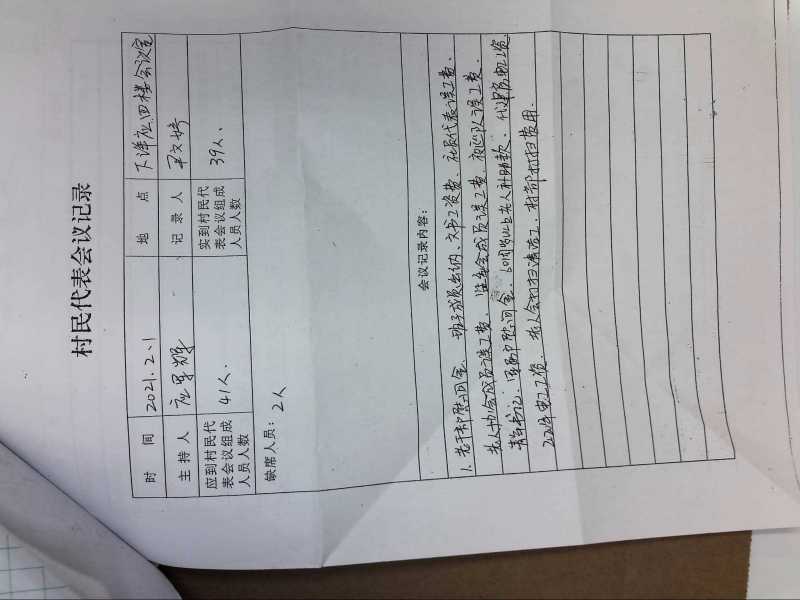 村民代表会议记录
时 间 2021.2.1 地 点 下洋应四楼会议室
主 持 人 应 记 录 人
应到村民代表会议组成人员人数 41人. 实到村民代表会议组成人员人数 39人.
缺席人员：2人
会议记录内容：
1. 老干部慰问金、班子成员出纳、文书工资费、社长代表误工费、
老人协会成员误工费、监委会成员误工费、夜巡队误工费、
书记、慰问金、60周岁以上老人补助款、代
2020年电工工资、老人会打扫清洁工、村部打扫费用.